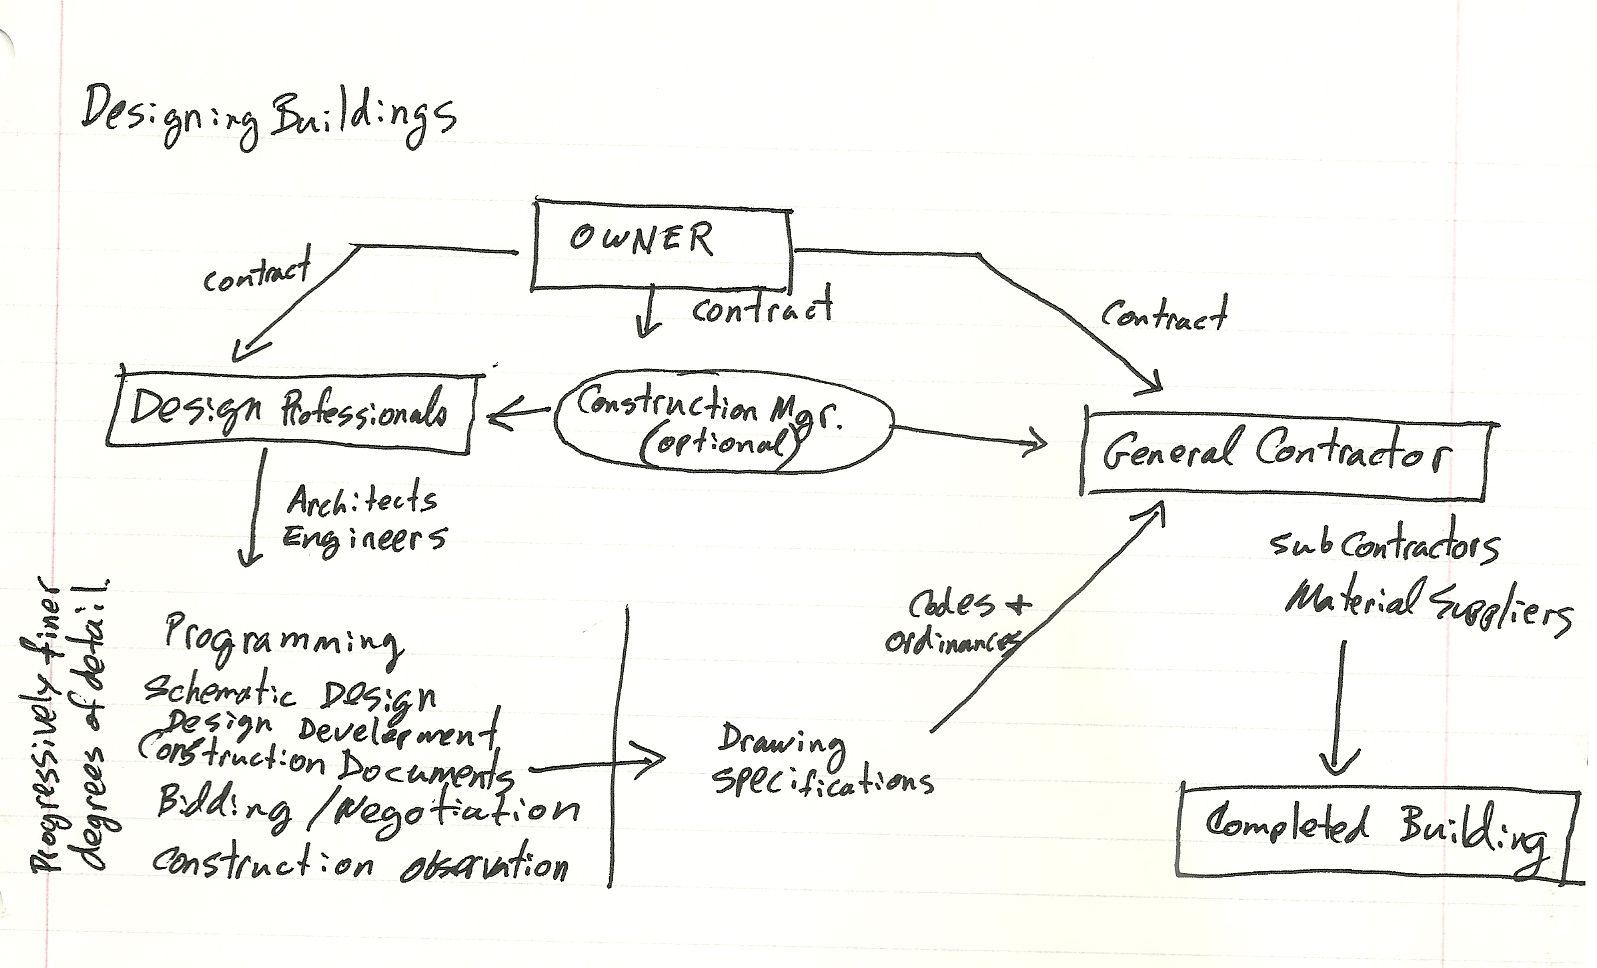 Designing Buildings
OWNER
contract
contract
Contract
Design Professionals
Construction Mgr.
(optional)
General Contractor
Architects
Engineers
subContractors
Material Suppliers
Progressively finer
degrees of detail
Programming
Schematic Design
Design Development
Construction Documents
Bidding / Negotiation
Construction observation
Codes +
ordinances
Drawing
specifications
Completed Building